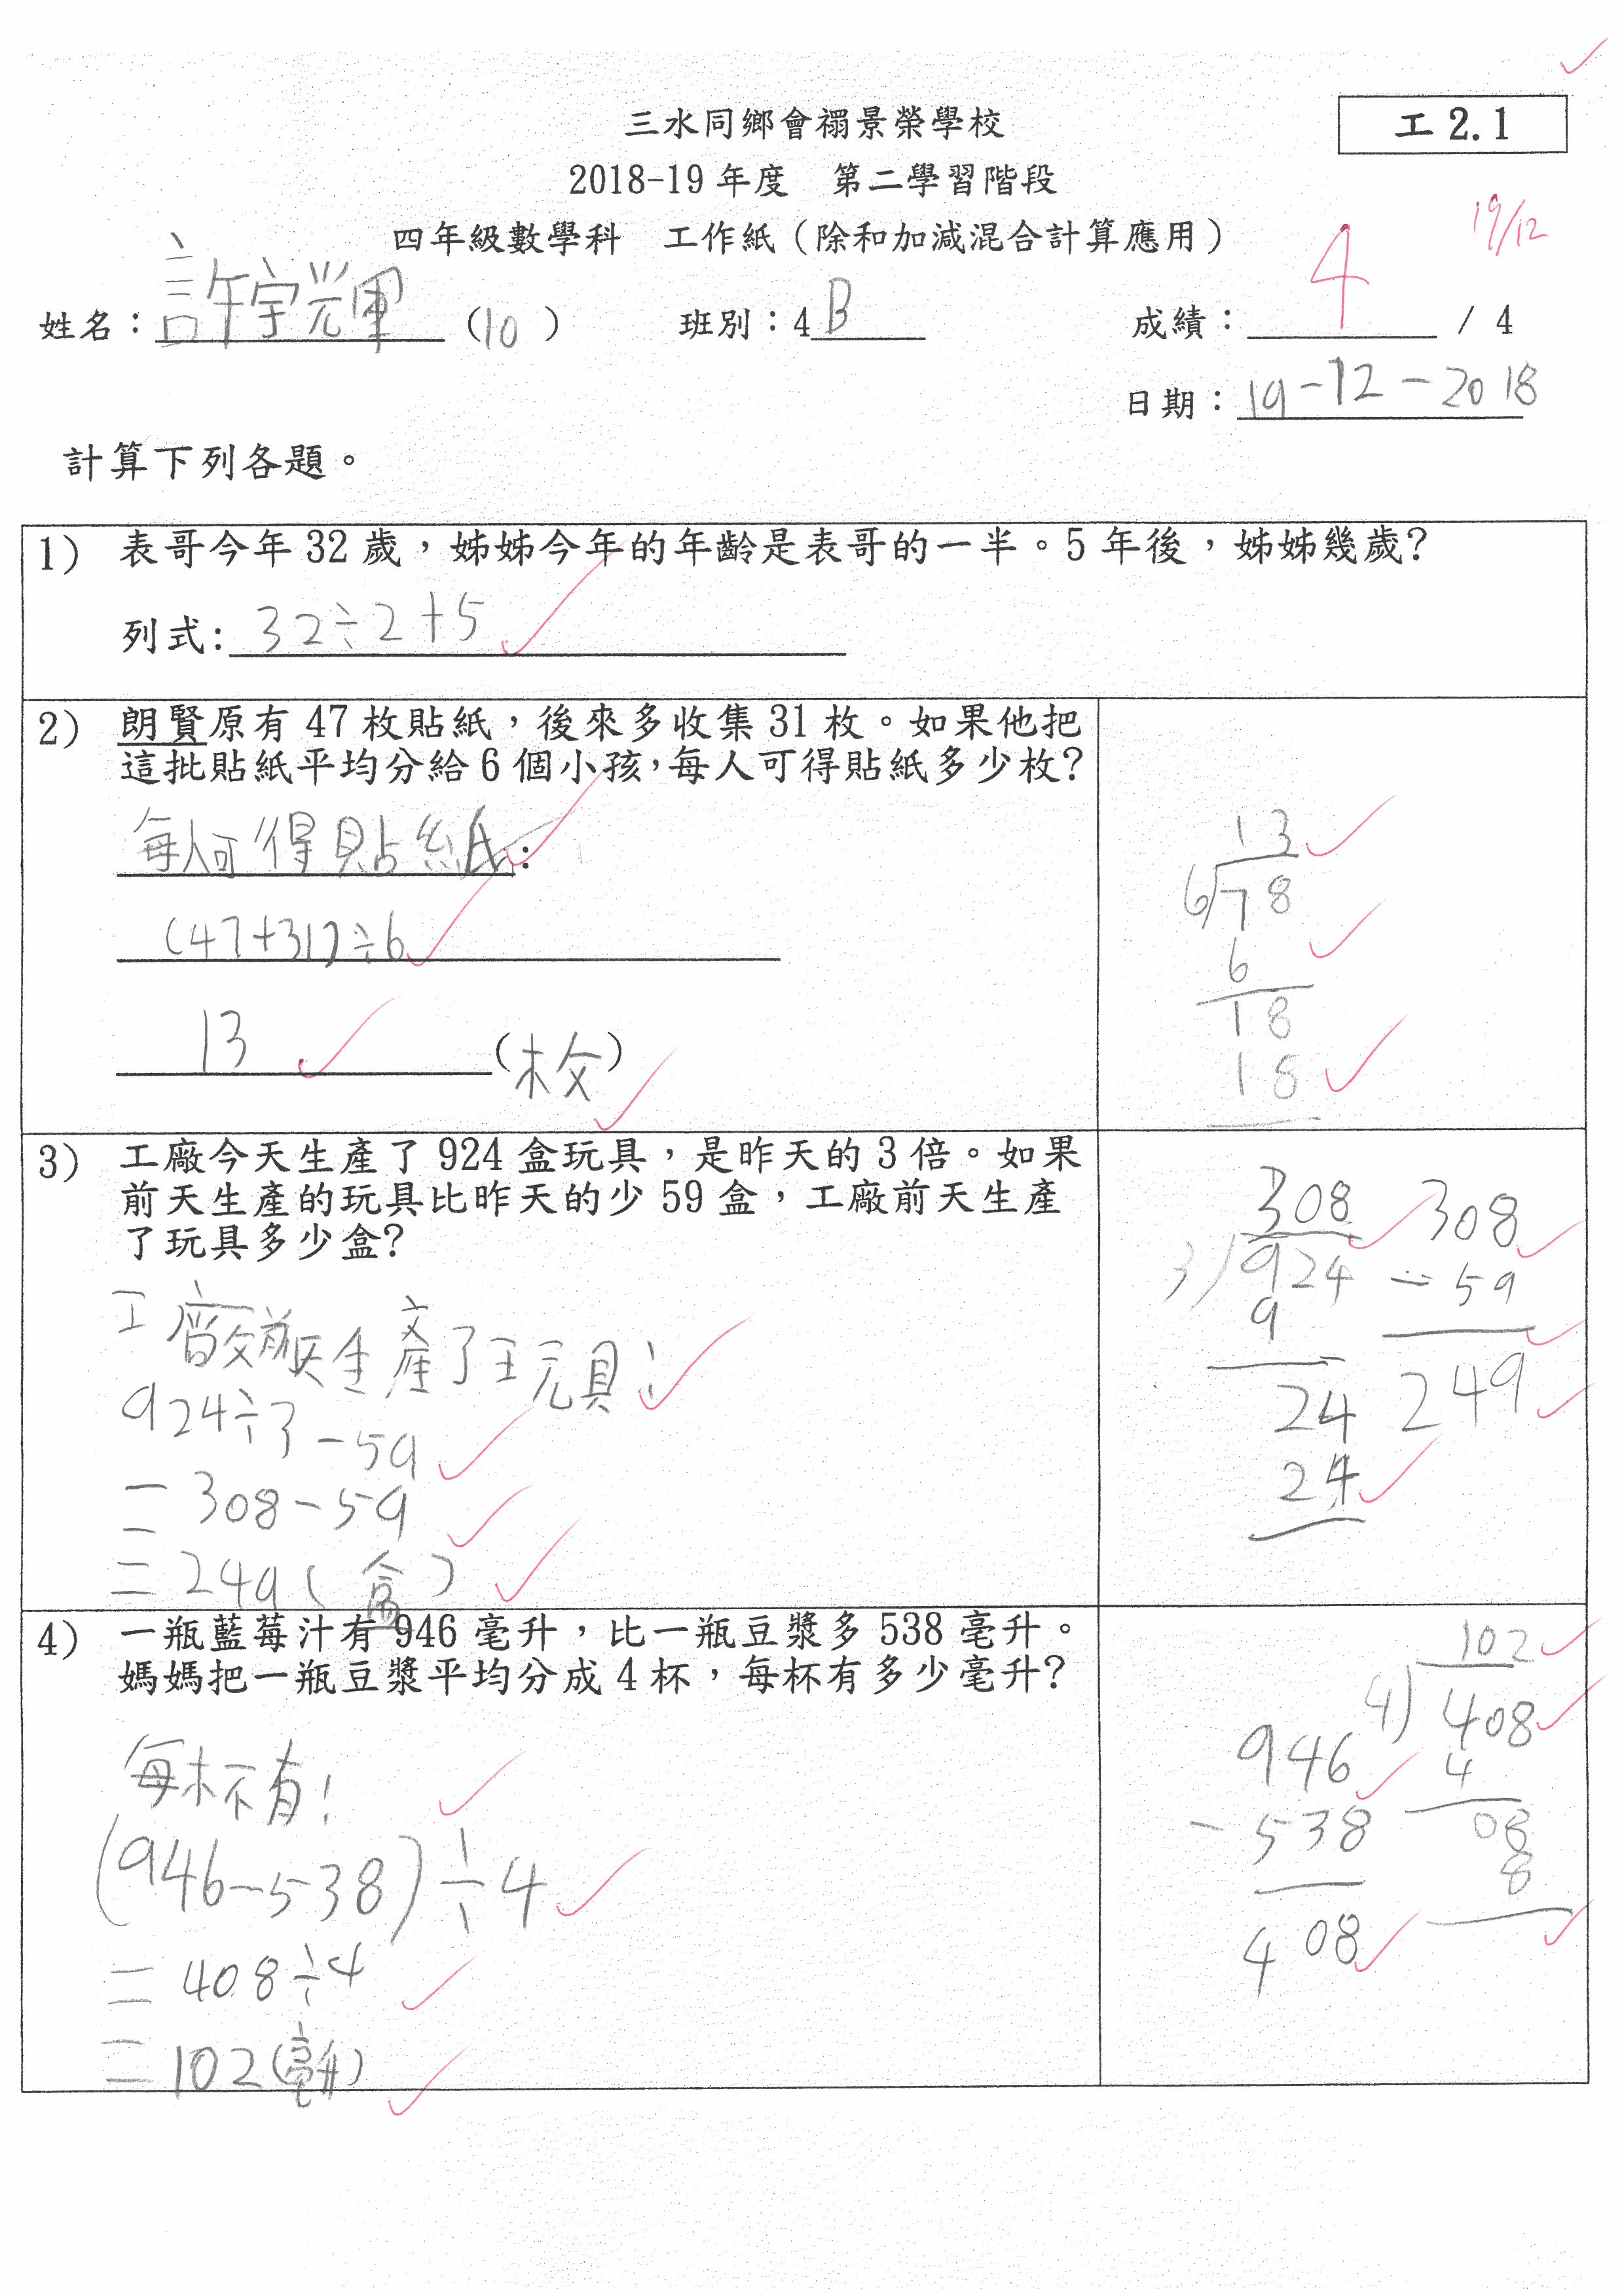 三水同鄉會禤景榮學校
工 2.1
2018-19 年度 第二學習階段
四年級數學科 工作紙（除和加減混合計算應用）
19/12
姓名：許宇輝 (10) 班別：4B 成績：4 / 4
日期：19-12-2018
計算下列各題。
1) 表哥今年 32 歲，姊姊今年的年齡是表哥的一半。5 年後，姊姊幾歲?
列式: 32÷2+5
2) 朗賢原有 47 枚貼紙，後來多收集 31 枚。如果他把
這批貼紙平均分給 6 個小孩，每人可得貼紙多少枚?
每人可得貼紙:
(47+31)÷6
13 (枚)
13
6)78
6
18
18
3) 工廠今天生產了 924 盒玩具，是昨天的 3 倍。如果
前天生產的玩具比昨天的少 59 盒，工廠前天生產
了玩具多少盒?
工廠前天生產了玩具:
924÷3-59
= 308-59
= 249(盒)
308
3)924
9
24
24
308
-59
249
4) 一瓶藍莓汁有 946 毫升，比一瓶豆漿多 538 毫升。
媽媽把一瓶豆漿平均分成 4 杯，每杯有多少毫升?
每杯有:
(946-538)÷4
= 408÷4
= 102(毫升)
946
-538
408
102
4)408
4
08
8